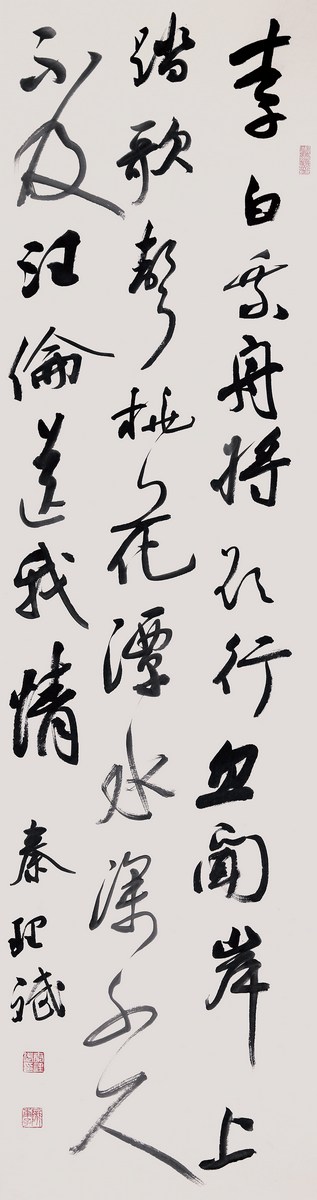 李白乘舟将欲行忽闻岸上
踏歌声桃花潭水深千尺
不及汪伦送我情
秦理斌